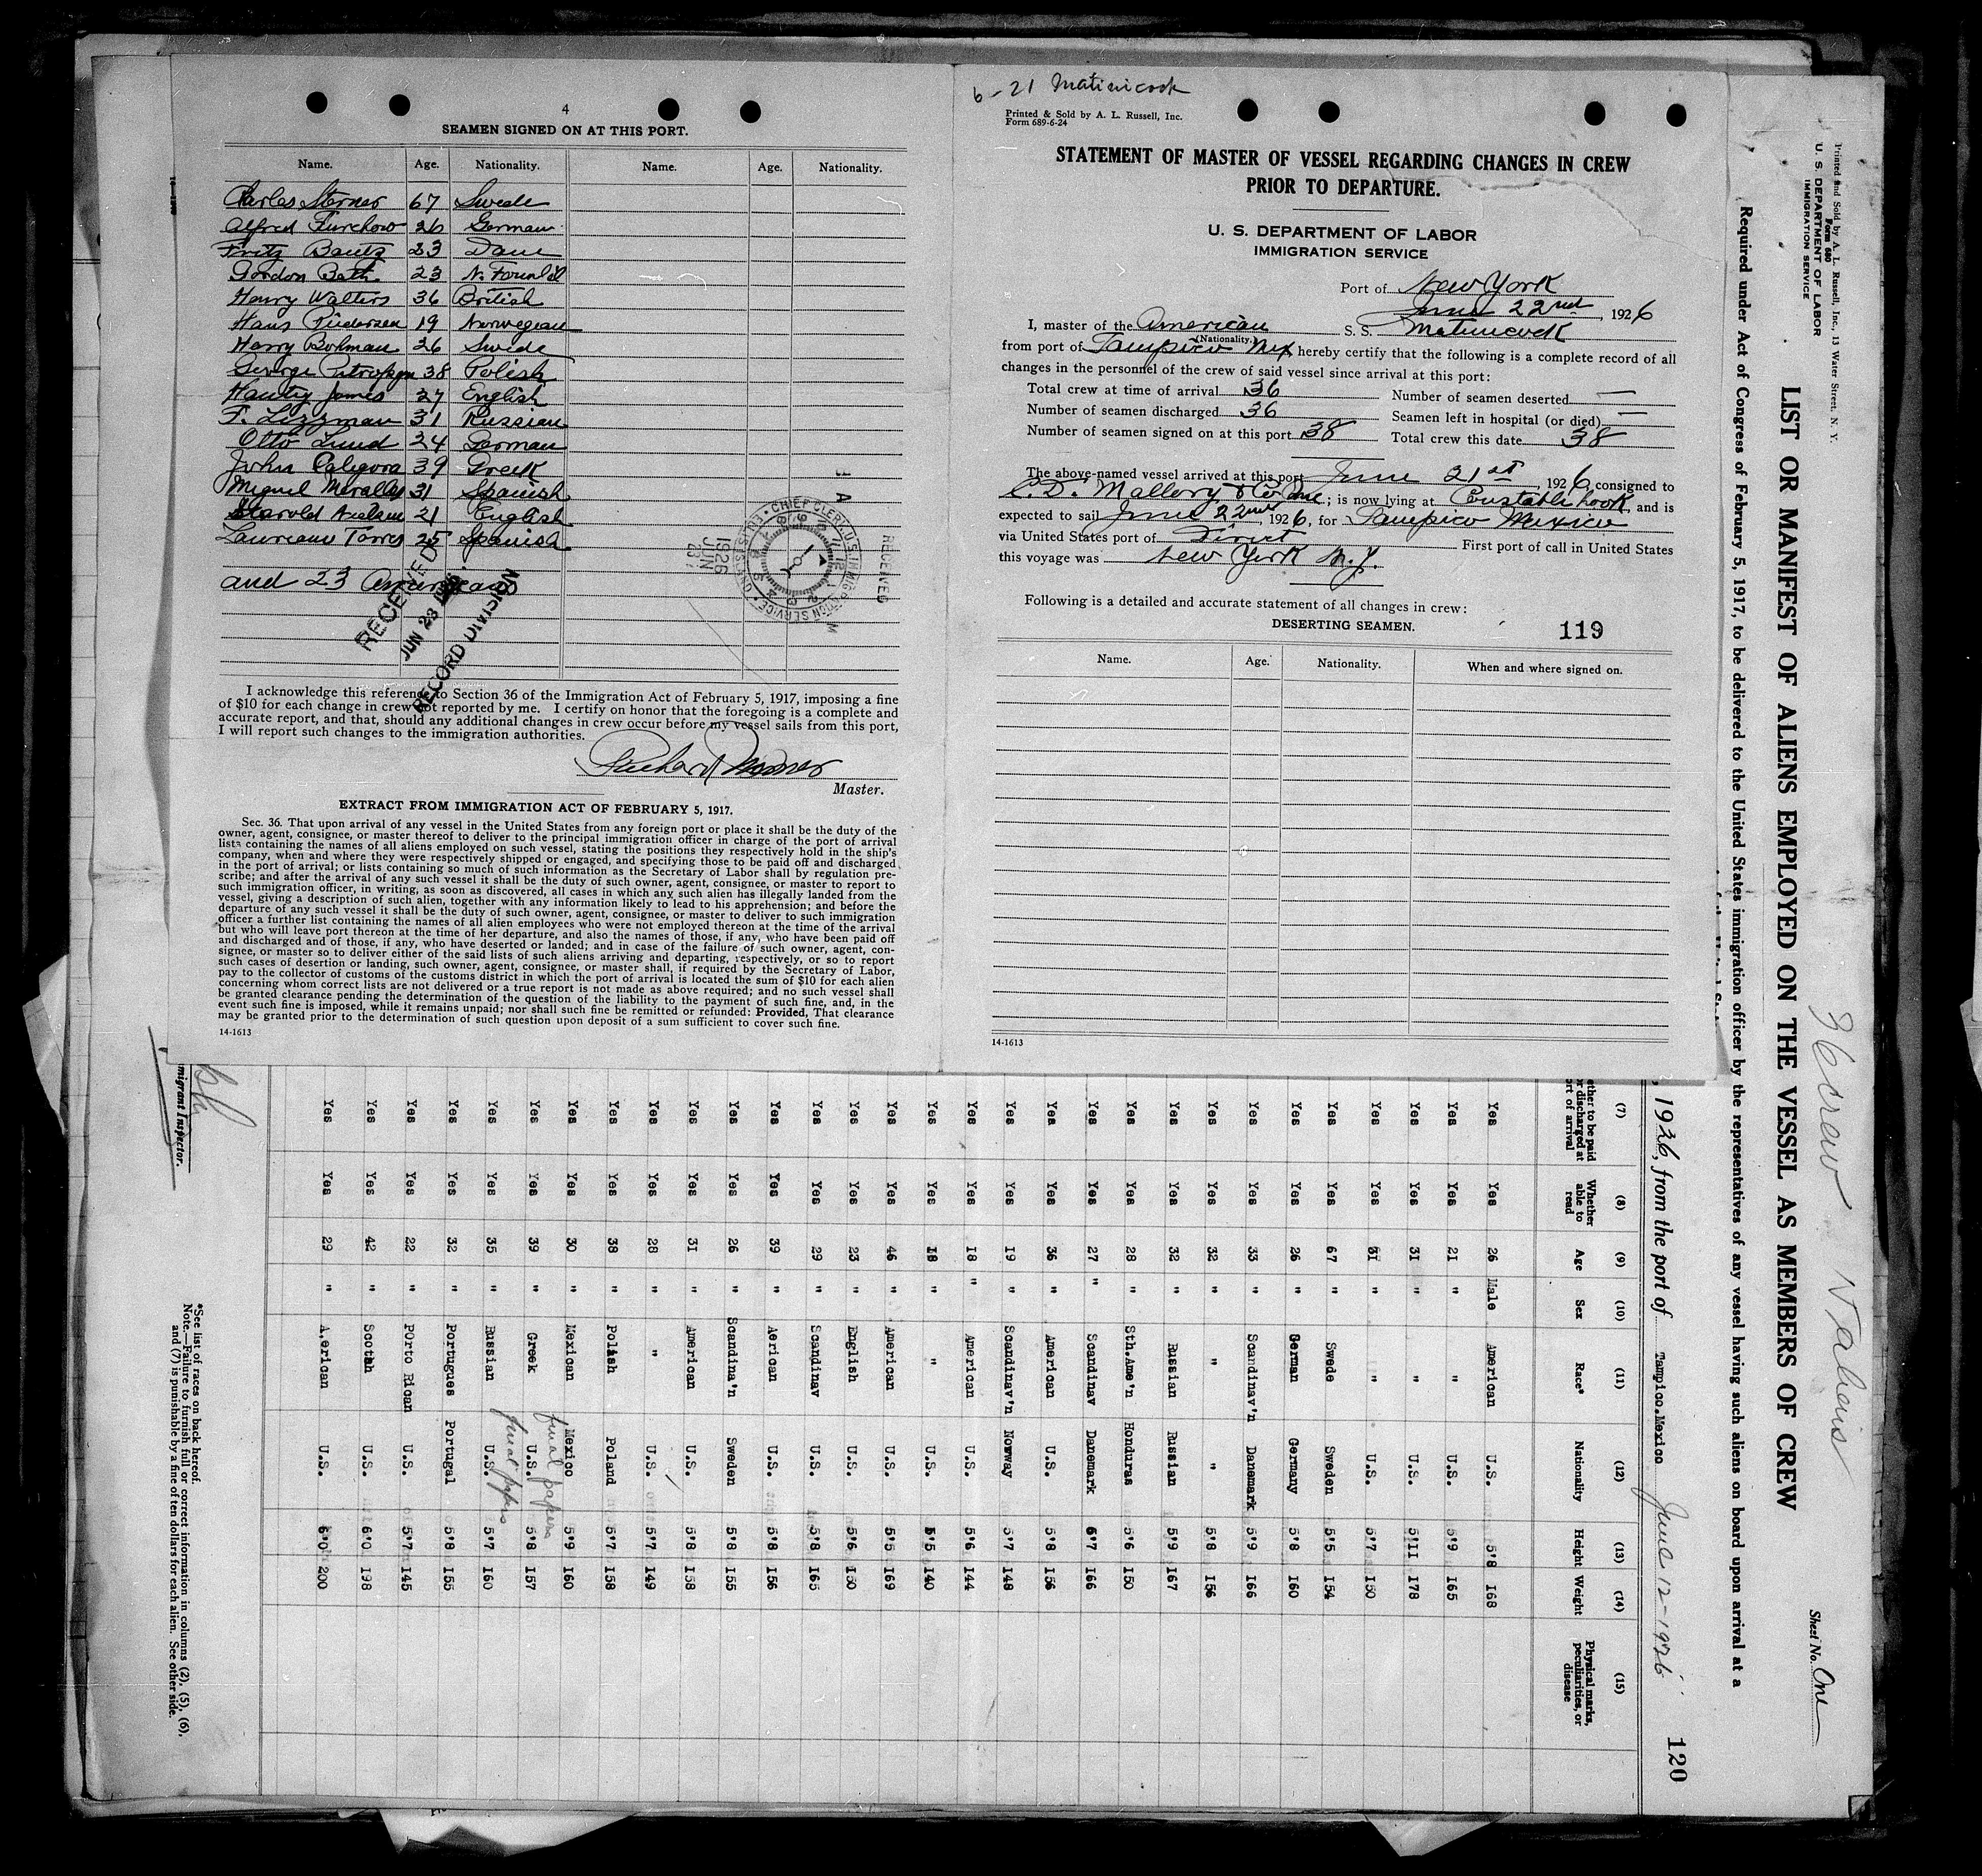 4
SEAMEN SIGNED ON AT THIS PORT.
Name. Age. Nationality. Name. Age. Nationality.
Charles Sterner 67 Swede
Alfred Furchow 26 German
Fritz Bautz 23 Dane
Gordon Bath 23 N. Founld
Henry Walters 36 British
Hans Pedersen 19 Norwegian
Harry Bohman 26 Swede
George 38 Polish
James 27 English
F. Lizzman 31 Russian
Otto Lund 24 German
John Caligora 39 Greek
Miguel 31 Spanish
Harold 21 English
Laureano Torres 25 Spanish
and 23 Americans
RECEIVED
JUN 23 1926
RECORD DIVISION
RECEIVED
1926 JUN
CHIEF CLERK U.S. IMMIGRATION SERVICE
I acknowledge this reference to Section 36 of the Immigration Act of February 5, 1917, imposing a fine
of $10 for each change in crew not reported by me. I certify on honor that the foregoing is a complete and
accurate report, and that, should any additional changes in crew occur before my vessel sails from this port,
I will report such changes to the immigration authorities.
Richard
Master.
EXTRACT FROM IMMIGRATION ACT OF FEBRUARY 5, 1917.
Sec. 36. That upon arrival of any vessel in the United States from any foreign port or place it shall be the duty of the
owner, agent, consignee, or master thereof to deliver to the principal immigration officer in charge of the port of arrival
lists containing the names of all aliens employed on such vessel, stating the positions they respectively hold in the ship's
company, when and where they were respectively shipped or engaged, and specifying those to be paid off and discharged
in the port of arrival; or lists containing so much of such information as the Secretary of Labor shall by regulation pre-
scribe; and after the arrival of any such vessel it shall be the duty of such owner, agent, consignee, or master to report to
such immigration officer, in writing, as soon as discovered, all cases in which any such alien has illegally landed from the
vessel, giving a description of such alien, together with any information likely to lead to his apprehension; and before the
departure of any such vessel it shall be the duty of such owner, agent, consignee, or master to deliver to such immigration
officer a further list containing the names of all alien employees who were not employed thereon at the time of the arrival
but who will leave port thereon at the time of her departure, and also the names of those, if any, who have been paid off
and discharged and of those, if any, who have deserted or landed; and in case of the failure of such owner, agent, con-
signee, or master so to deliver either of the said lists of such aliens arriving and departing, respectively, or so to report
such cases of desertion or landing, such owner, agent, consignee, or master shall, if required by the Secretary of Labor,
pay to the collector of customs of the customs district in which the port of arrival is located the sum of $10 for each alien
concerning whom correct lists are not delivered or a true report is not made as above required; and no such vessel shall
be granted clearance pending the determination of the question of the liability to the payment of such fine, and, in the
event such fine is imposed, while it remains unpaid; nor shall such fine be remitted or refunded: Provided, That clearance
may be granted prior to the determination of such question upon deposit of a sum sufficient to cover such fine.
14-1613
6-21 Matinicock
Printed & Sold by A. L. Russell, Inc.
Form 689-6-24
STATEMENT OF MASTER OF VESSEL REGARDING CHANGES IN CREW
PRIOR TO DEPARTURE.
U. S. DEPARTMENT OF LABOR
IMMIGRATION SERVICE
Port of New York
June 22nd, 1926
I, master of the American S. S. Matinicock
(Nationality.)
from port of Tampico Mex hereby certify that the following is a complete record of all
changes in the personnel of the crew of said vessel since arrival at this port:
Total crew at time of arrival 36 Number of seamen deserted —
Number of seamen discharged 36 Seamen left in hospital (or died) —
Number of seamen signed on at this port 38 Total crew this date 38
The above-named vessel arrived at this port June 21st, 1926, consigned to
C. D. Mallory & Co Inc; is now lying at Constable hook, and is
expected to sail June 22nd, 1926, for Tampico Mexico
via United States port of Direct First port of call in United States
this voyage was New York N.Y.
Following is a detailed and accurate statement of all changes in crew:
DESERTING SEAMEN.
119
Name. Age. Nationality. When and where signed on.
14-1613
Printed and Sold by A. L. Russell, Inc., 13 Water Street, N. Y.
Form 680
U. S. DEPARTMENT OF LABOR
IMMIGRATION SERVICE
36 crew
Sheet No. One
LIST OR MANIFEST OF ALIENS EMPLOYED ON THE VESSEL AS MEMBERS OF CREW
Required under Act of Congress of February 5, 1917, to be delivered to the United States immigration officer by the representatives of any vessel having such aliens on board upon arrival at a
, 1926, from the port of Tampico.Mexico June 12-1926
120
(7) (8) (9) (10) (11) (12) (13) (14) (15)
ether to be paid or discharged at ort of arrival Whether able to read Age Sex Race* Nationality Height Weight Physical marks, peculiarities, or disease
Yes Yes 26 Male American U.S. 5'8 168
Yes Yes 21 " " U.S. 5'9 165
Yes Yes 31 " " U.S. 5'11 178
Yes Yes 31 " " U.S. 5'7 150
Yes Yes 67 " Swede Sweden 5'5 154
Yes Yes 26 " German Germany 5'8 160
Yes Yes 33 " Scandinav'n Danemark 5'9 166
Yes Yes 32 " " " 5'8 156
Yes Yes 32 " Russian Russian 5'9 167
Yes Yes 28 " Sth.Ame'n Honduras 5'6 150
Yes Yes 27 " Scandinav Danemark 6'7 166
Yes Yes 36 " American U.S. 5'8 156
Yes Yes 19 " Scandinav'n Noway 5'7 148
Yes Yes 18 " American U.S. 5'6 144
Yes Yes 18 " " U.S. 5'5 140
Yes Yes 46 " American U.S. 5'5 169
Yes Yes 23 " English U.S. 5'6 150
Yes Yes 29 " Scandinav U.S. 5'8 165
Yes Yes 39 " Aerican U.S. 5'8 156
Yes Yes 26 " Scandina'n Sweden 5'8 155
Yes Yes 31 " American U.S. 5'8 158
Yes Yes 28 " " U.S. 5'7 149
Yes Yes 38 " Polish Poland 5'7 158
Yes Yes 30 " Mexican Mexico 5'9 160
final papers
Yes Yes 39 " Greek U.S. 5'8 157
final papers
Yes Yes 35 " Russian U.S. 5'7 160
Yes Yes 32 " Portugues Portugal 5'8 155
Yes Yes 22 " POrto Rican U.S. 5'7 145
Yes Yes 42 " Scotch U.S. 6'0 198
Yes Yes 29 " A.erican U.S. 6'0 200
migrant Inspector.
*See list of races on back hereof.
Note.—Failure to furnish full or correct information in columns (2), (5), (6),
and (7) is punishable by a fine of ten dollars for each alien. See other side.